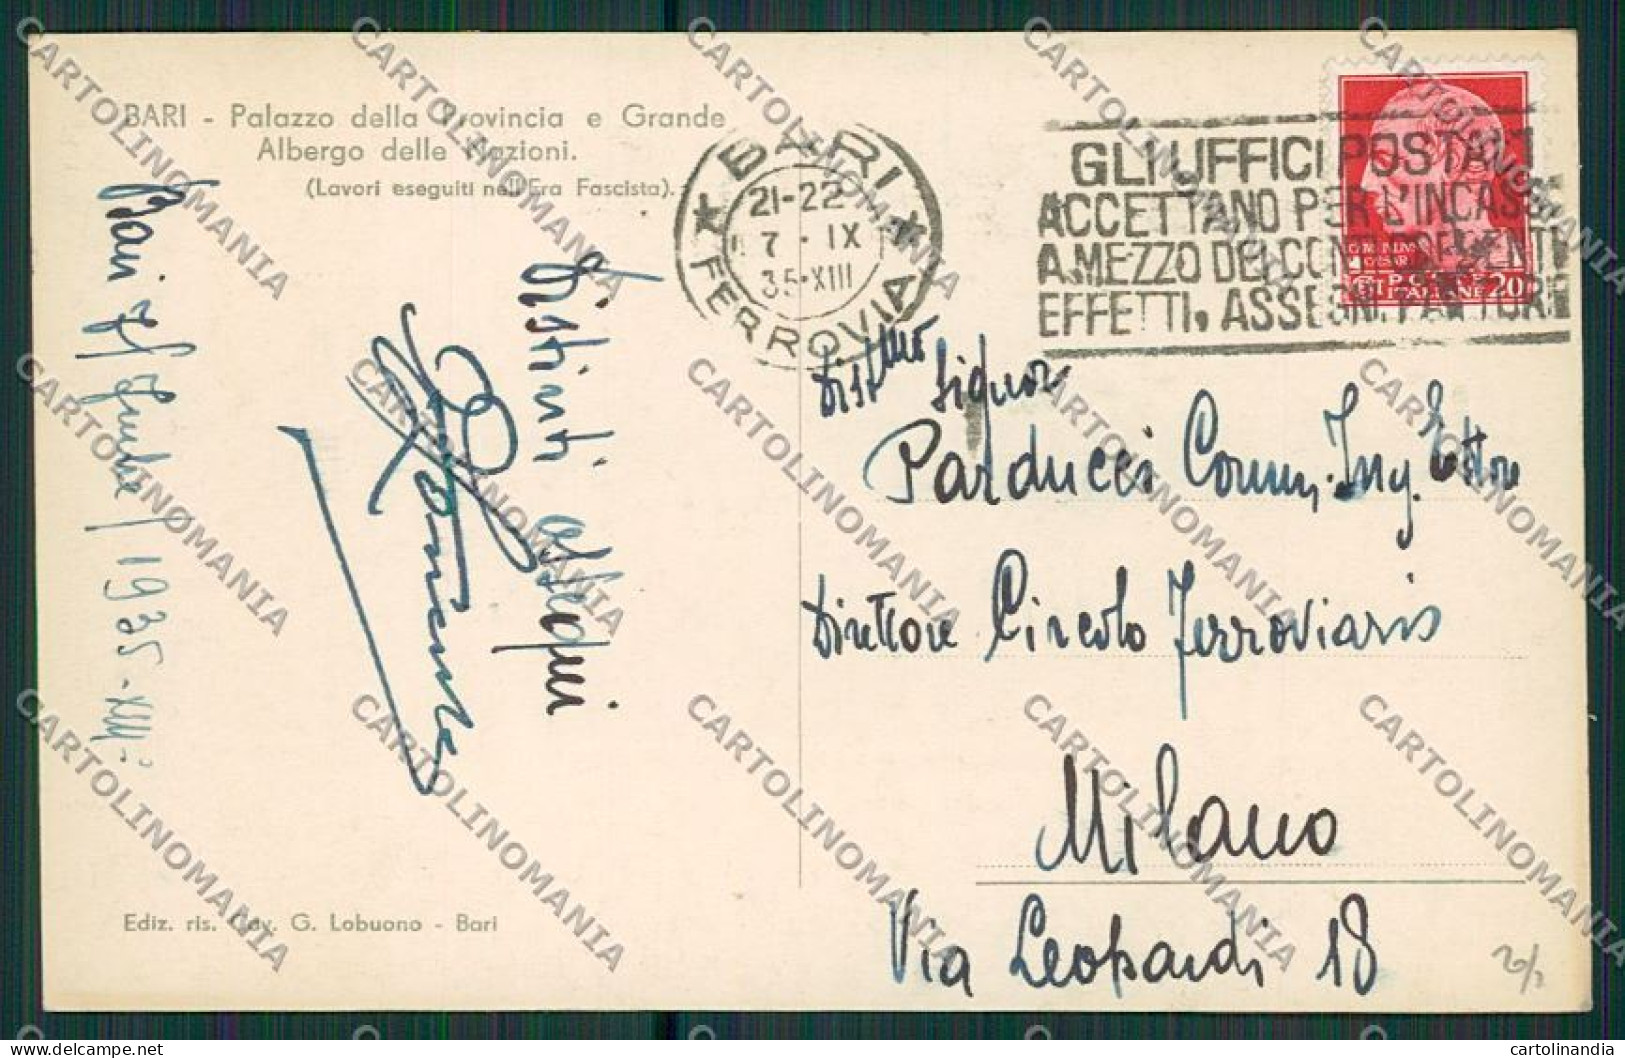 BARI - Palazzo della Provincia e Grande
Albergo delle Nazioni.
(Lavori eseguiti nell'Era Fascista).
BARI
21-22
7 · IX
35·XIII
FERROVIA
GLI UFFICI POSTALI
ACCETTANO PER L'INCASSO
A MEZZO DEI CORR
EFFETTI, ASSEGNI, FATTURE
POSTE ITALIANE 20
Bari 7/ 1935-XIII
Distinti ossequi
Dist.mo Signor
Parducci Comm. Ing. Ettore
Direttore Circolo Ferroviario
Milano
Via Leopardi 18
Ediz. ris. Cav. G. Lobuono - Bari
CARTOLINOMANIA
cartolinandia